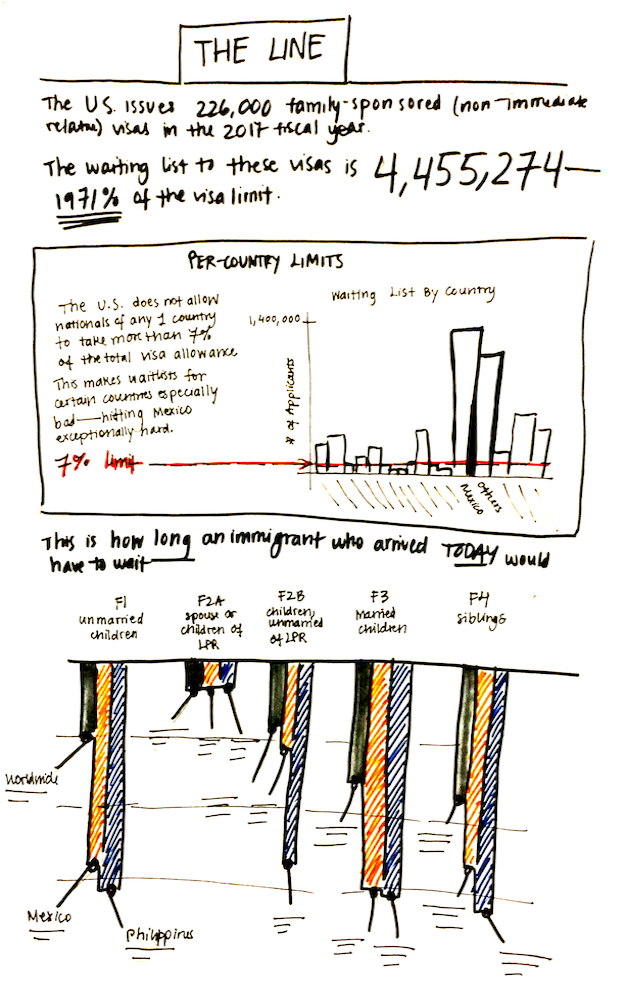 THE LINE
The U.S. issues 226,000 family-sponsored (non-immediate
relative) visas in the 2017 fiscal year.
The waiting list to these visas is 4,455,274—
1971% of the visa limit.
PER-COUNTRY LIMITS
The U.S. does not allow
nationals of any 1 country
to take more than 7%
of the total visa allowance
This makes waitlists for
certain countries especially
bad—hitting Mexico
exceptionally hard.
7% limit
Waiting List By Country
1,400,000
# of Applicants
Mexico
Others
This is how long an immigrant who arrived TODAY would
have to wait
F1
unmarried
children
F2A
spouse or
children of
LPR
F2B
children,
unmarried
of LPR
F3
married
children
F4
siblings
Worldwide
Mexico
Philippines